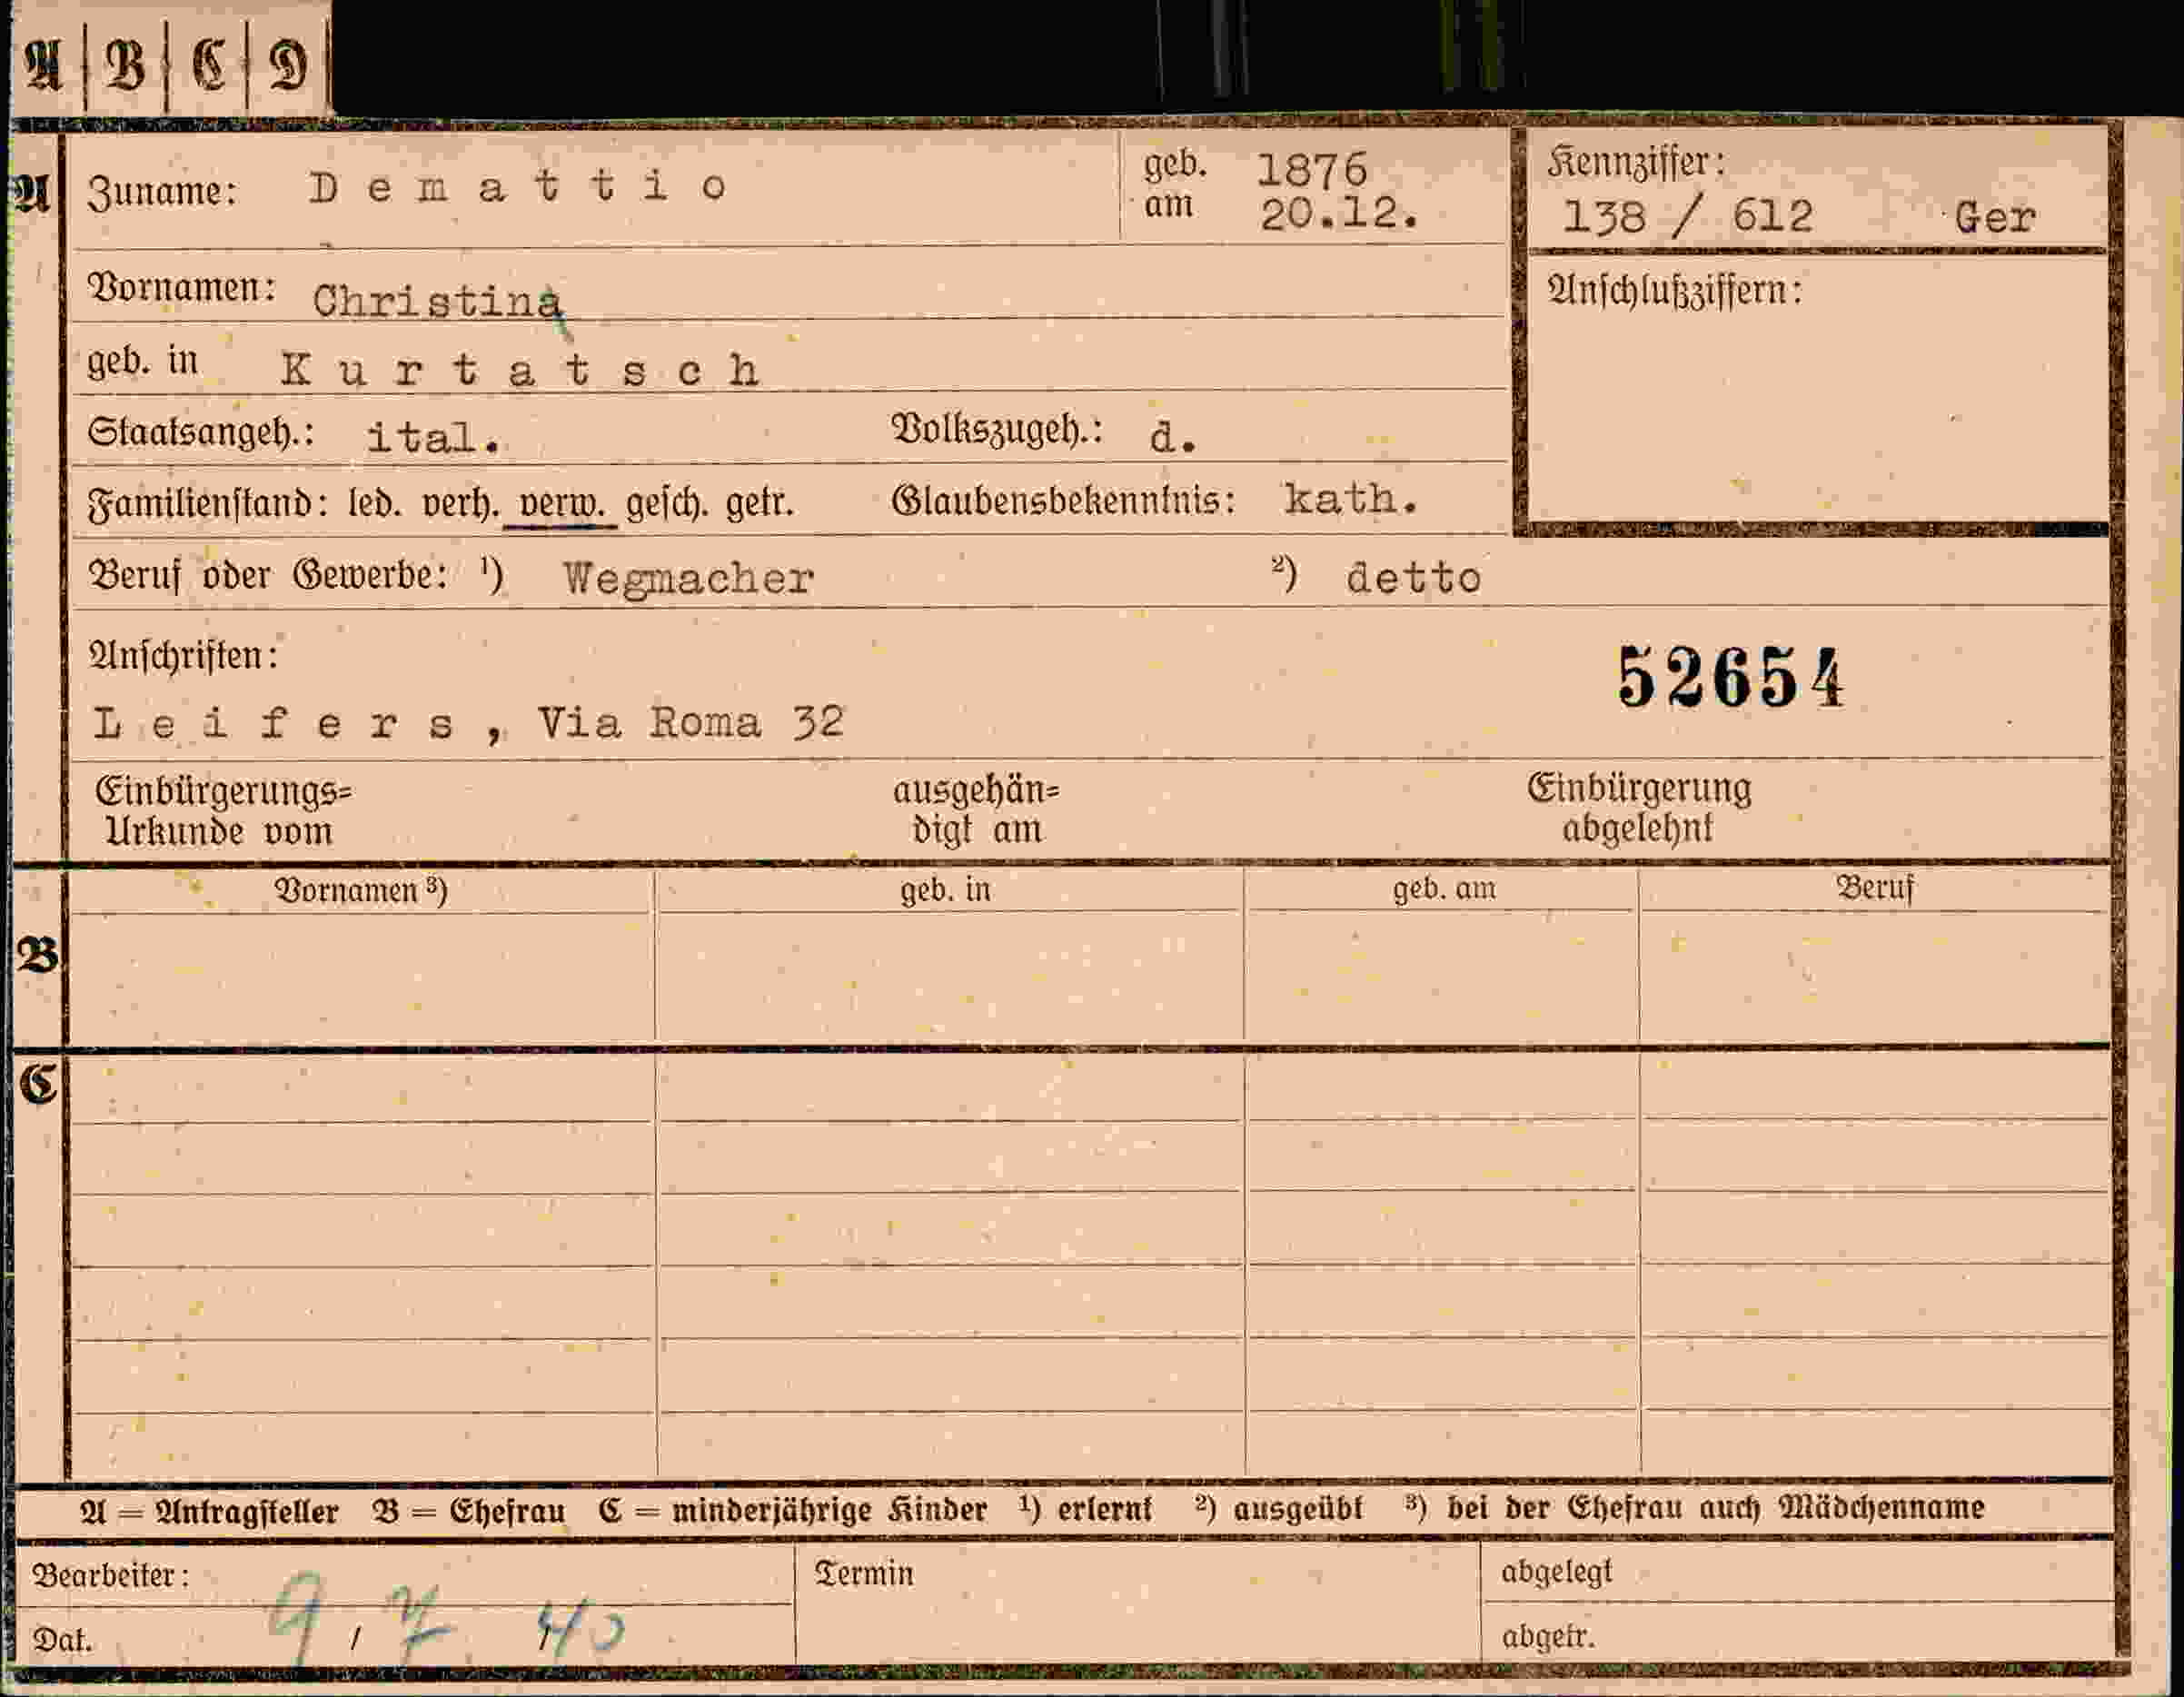 A | B | C | D
A
Zuname: Demattio geb. am 1876 20.12. Kennziffer: 138 / 612 Ger
Vornamen: Christina Anschlußziffern:
geb. in Kurtatsch
Staatsangeh.: ital. Volkszugeh.: d.
Familienstand: led. verh. verw. gesch. getr. Glaubensbekenntnis: kath.
Beruf oder Gewerbe: ¹) Wegmacher ²) detto
Anschriften: 52654
Leifers, Via Roma 32
Einbürgerungs= ausgehän= Einbürgerung
Urkunde vom digt am abgelehnt
Vornamen ³) geb. in geb. am Beruf
B
C
A = Antragsteller B = Ehefrau C = minderjährige Kinder ¹) erlernt ²) ausgeübt ³) bei der Ehefrau auch Mädchenname
Bearbeiter: Termin abgelegt
Dat. 9 / 7 40 abgetr.